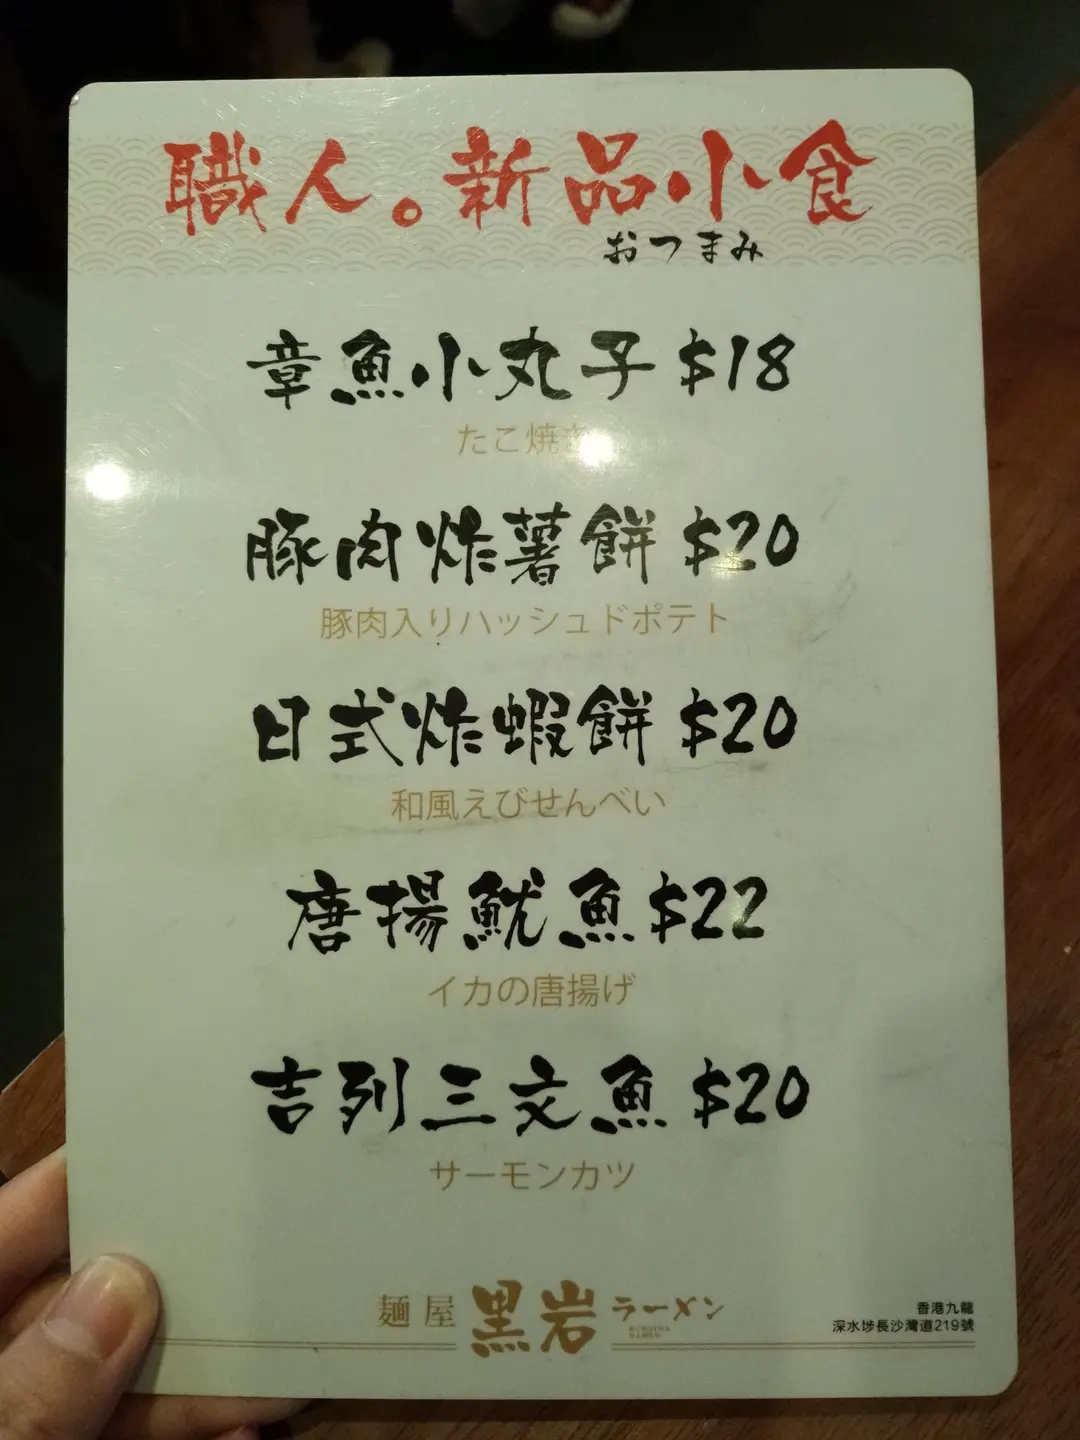 職人。新品小食
おつまみ
章魚小丸子 $18
たこ焼き
豚肉炸薯餅 $20
豚肉入りハッシュドポテト
日式炸蝦餅 $20
和風えびせんべい
唐揚魷魚 $22
イカの唐揚げ
吉列三文魚 $20
サーモンカツ
麺屋 黒岩 ラーメン
香港九龍
深水埗長沙灣道219號